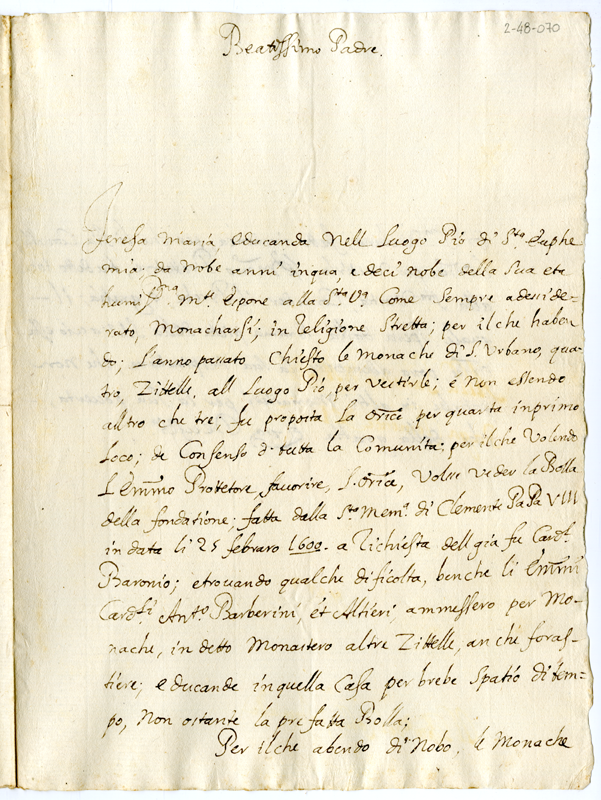 2-48-070
Beatissimo Padre.
Teresa Maria educanda nell Luogo Pio di S.ta Euphe
mia; da nobe anni inqua, e deci nobe della sua eta
humiss.ma m.te Espone alla S.ta V.a Come sempre a desside=
rato, Monacharsi; in religione stretta; per il che haben
do; l'anno passato Chiesto le Monache di S. Urbano, qua=
tro, Zittelle, all Luogo Pio per vestirle; é non essendo
alltro che tre; fu proposta la Orice per quarta inprimo
loco; di Consenso di tutta la Comunita; per il che volendo
l'Emmo Protetore, favorire, l'Orice, volse veder la Bolla
della fondatione; fatta dalla S.ta Mem.a di Clemente PaPa VIII
in data li 25 febraro 1600. a richiesta dell già fu Card.l
Baronio; e trovando qualche dificolta, benche li Emmi
Card.li Ant.o Barberini, et Altieri, ammessero per Mo=
nache, in detto Monastero altre Zittelle, anche foras=
tiere; educande in quella Casa per brebe spatio di tem=
po, non ostante la prefatta Bolla;
Per il che abendo di nobo, le Monache